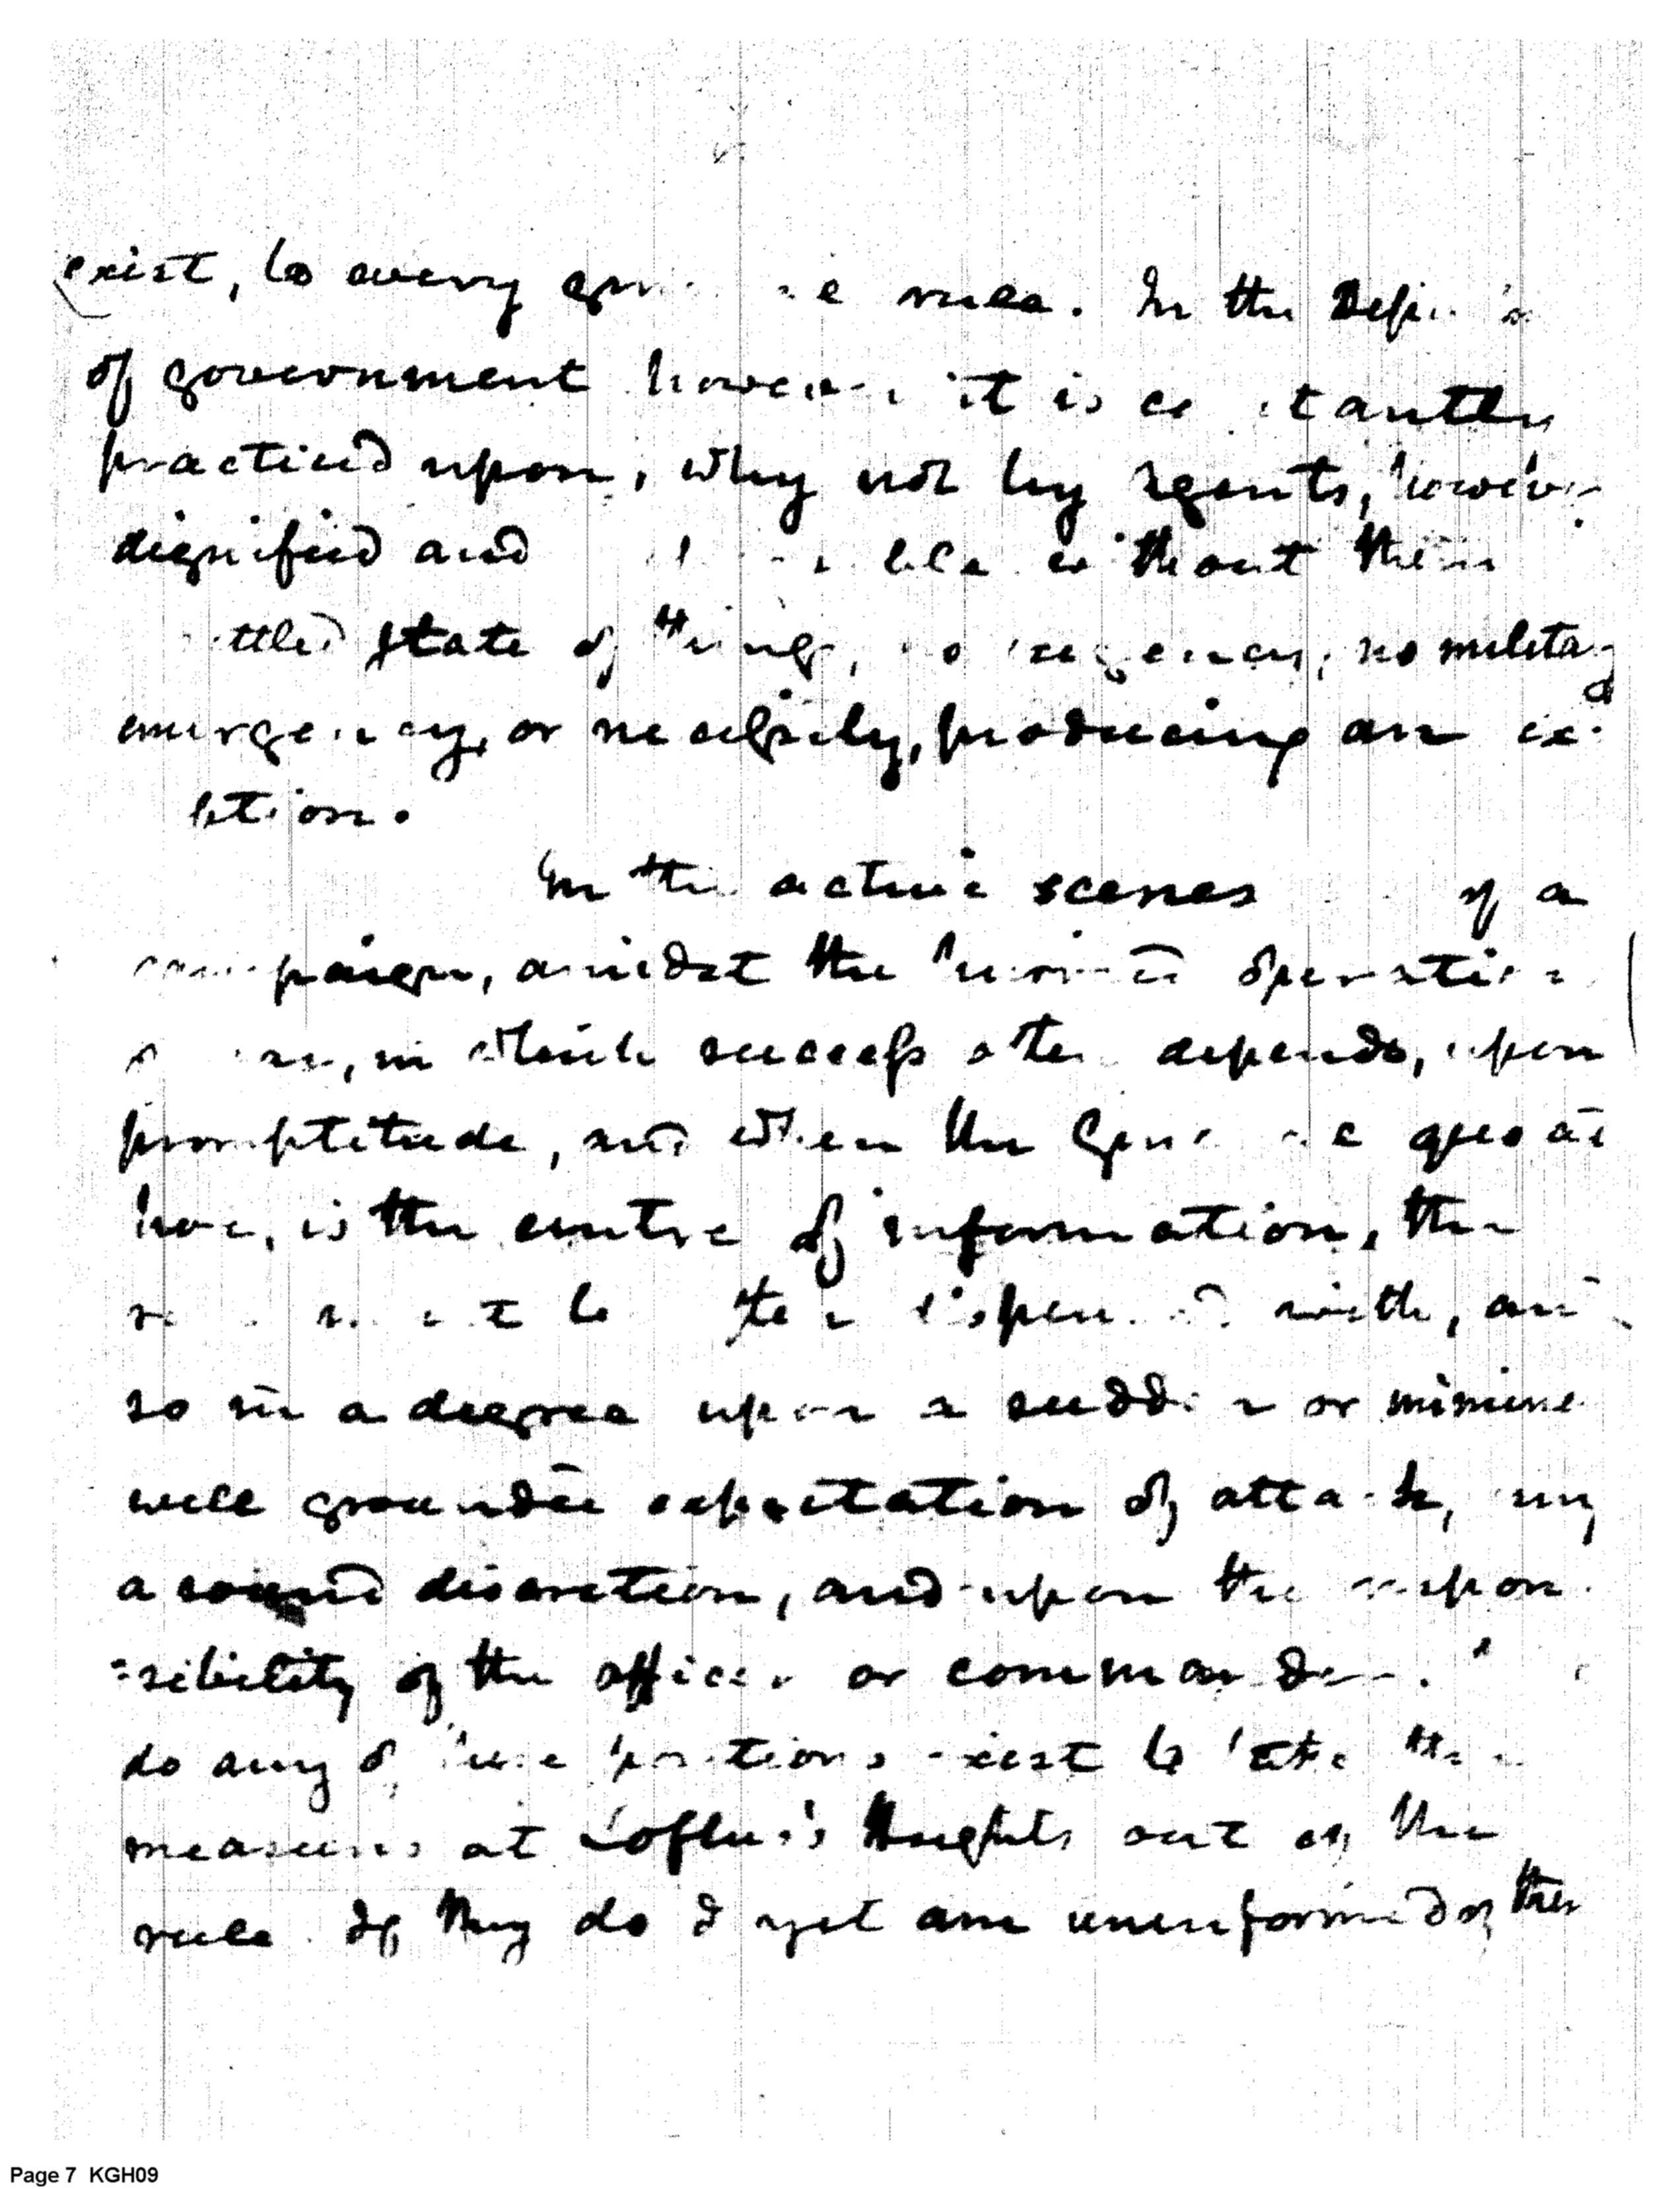 exist, to every general rule. In the Depar
of government however it is constantly
practiced upon, why not by agents, however
dignified and without their
settled state of things, no exigency, no military
emergency, or necessity, producing an ex
ption.
In the active scenes of a
campaign, amidst the hurried operations
in which success often depends, upon
promptitude, and when the General quoad
hoc, is the centre of information, the
to often dispensed with, and
so in a degree upon a sudden or
well grounded expectation of attack, 
a sound discretion, and upon the respon
=sibility of the officer or commander.
do any of these positions exist to take the
measures at Loftus's Heights out of the
rule. If they do I yet am uninformed of them
Page 7 KGH09